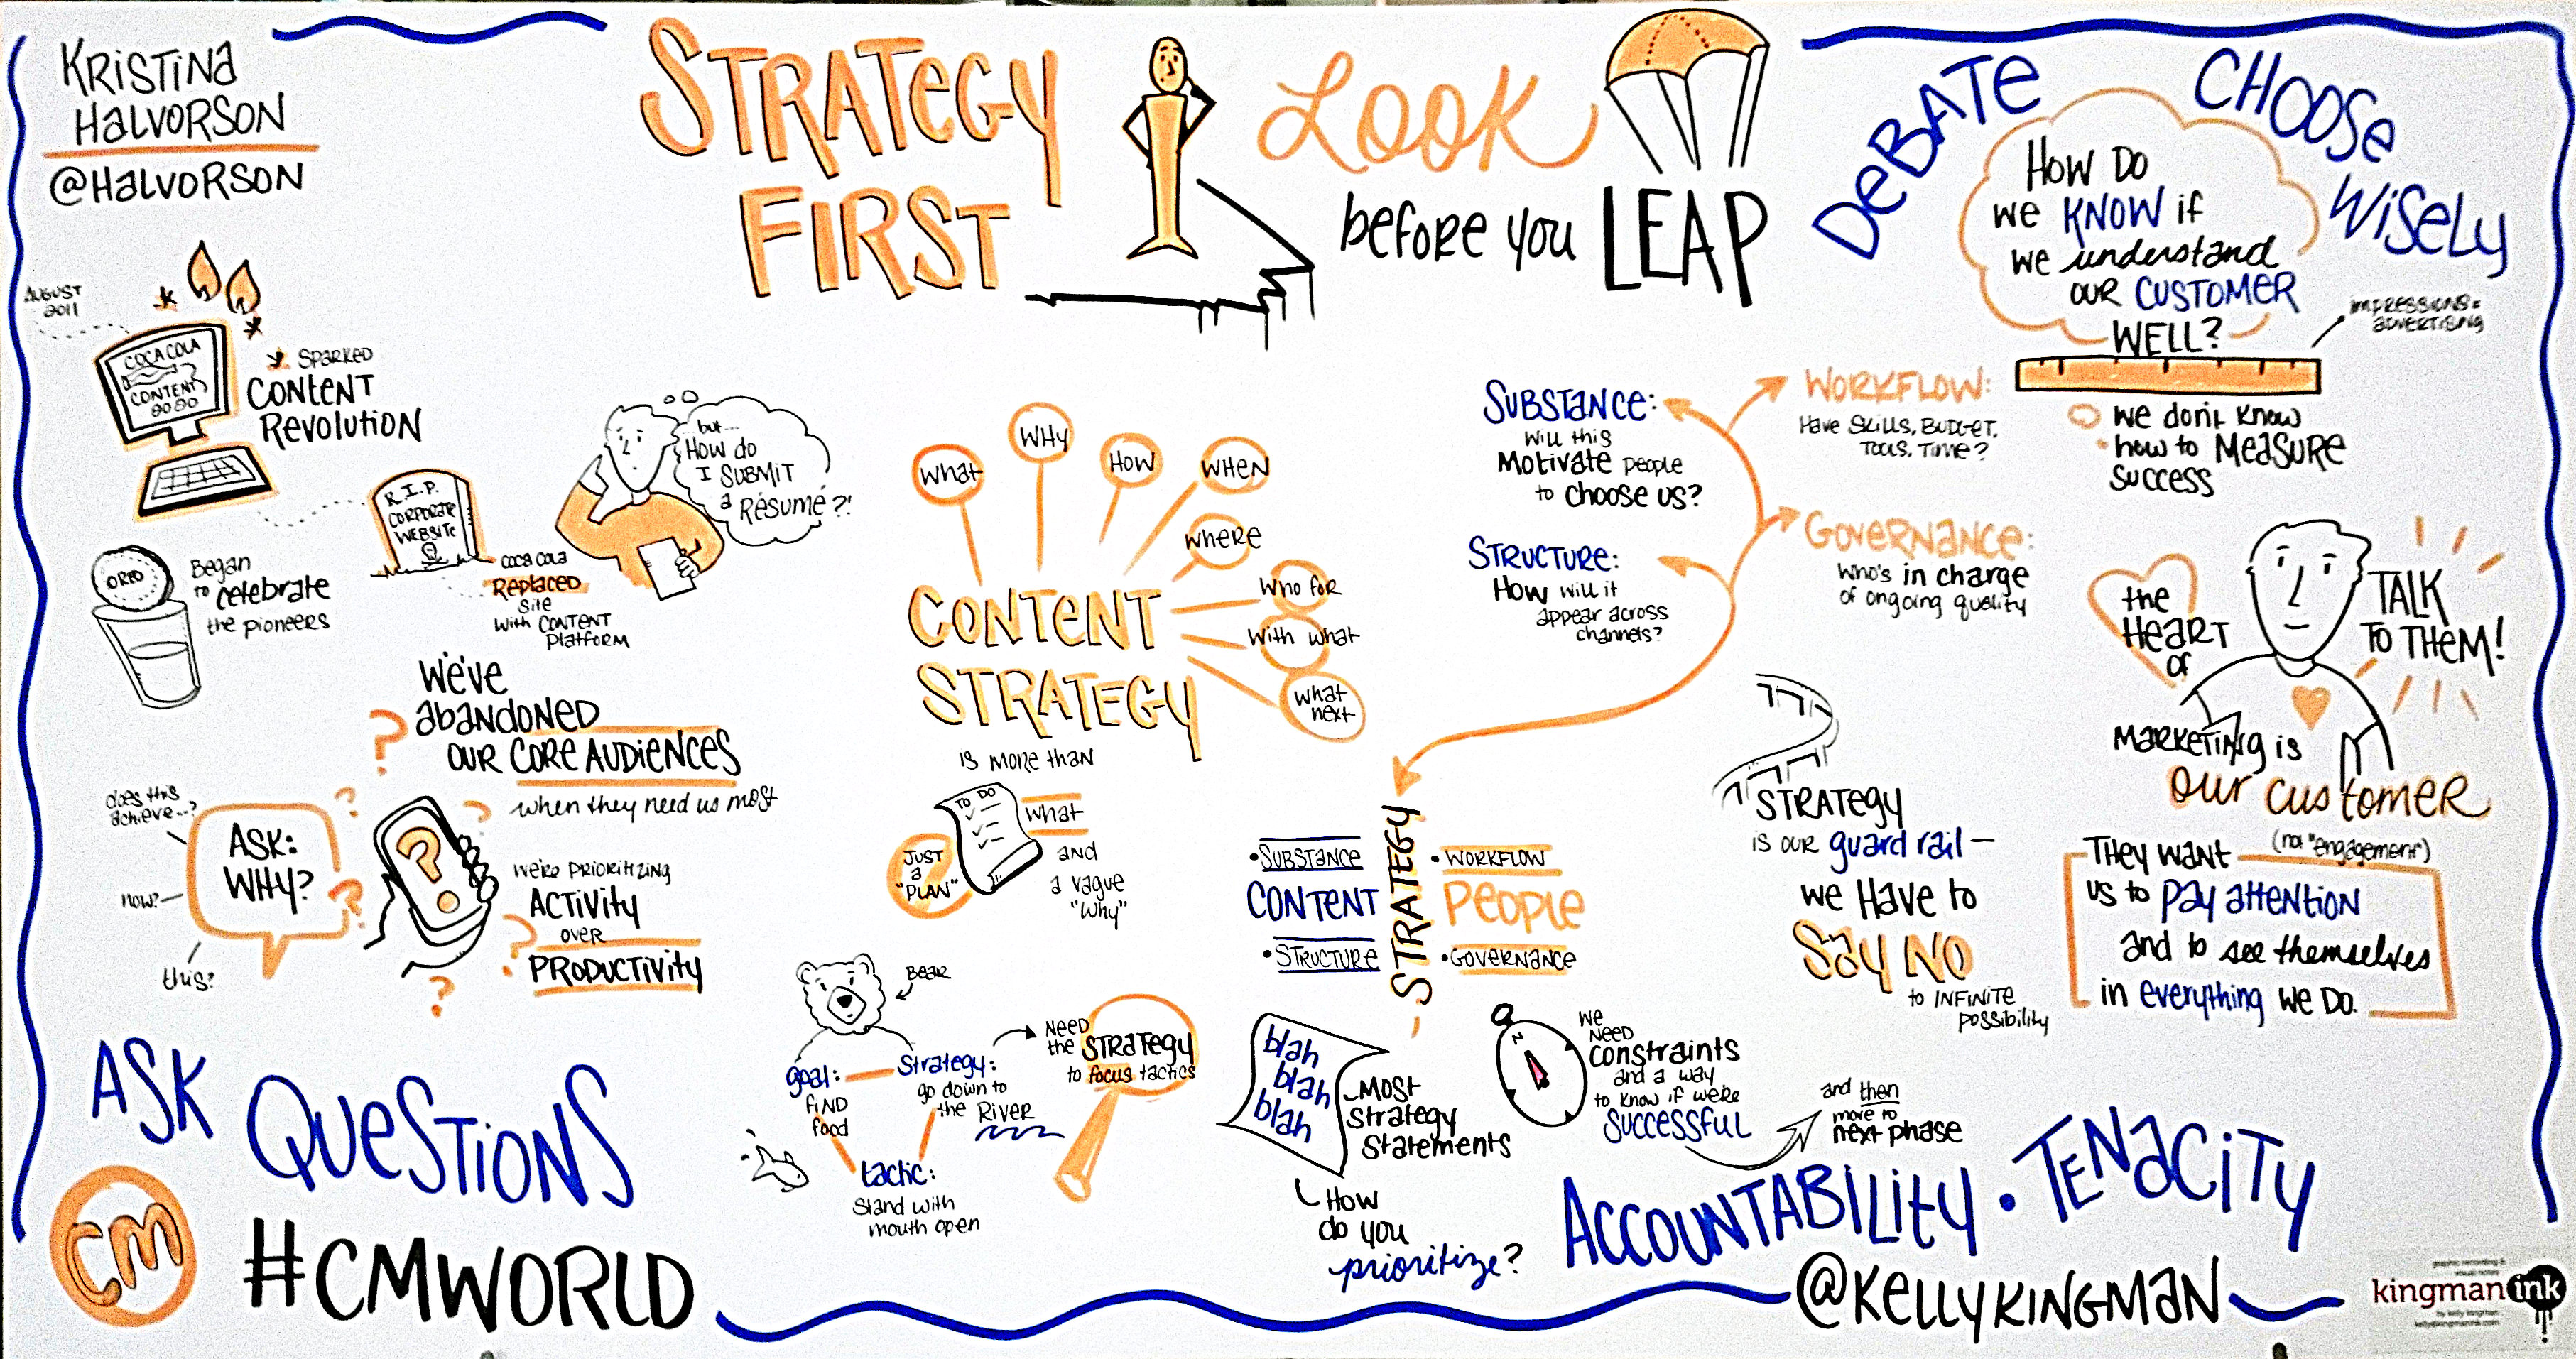 KRISTINA
HALVORSON
@HALVORSON
STRATEGY
FIRST
LOOK
before you LEAP
DEBATE
CHOOSE
WISELY
HOW DO
we KNOW if
we understand
OUR CUSTOMER
WELL?
IMPRESSIONS =
ADVERTISING
we don't know
how to MEASURE
SUCCESS
AUGUST
2011
COCA COLA
CONTENT
2020
SPARKED
CONTENT
REVOLUTION
R.I.P.
CORPORATE
WEBSITE
COCA COLA
REPLACED
site
with CONTENT
Platform
but...
HOW do
I SUBMIT
a RÉSUMÉ?!
OREO
Began
to celebrate
the pioneers
We've
abandoned
OUR CORE AUDIENCES
when they need us most
does this
achieve...?
ASK:
WHY?
now?
this?
?
we're PRIORITIZING
ACTIVITY
OVER
PRODUCTIVITY
ASK QUESTIONS
CM
#CMWORLD
WHAT
WHY
HOW
WHEN
WHERE
WHO FOR
With what
what
next
CONTENT
STRATEGY
is more than
JUST
a
"PLAN"
TO DO
what
and
a vague
"why"
BEAR
goal:
FIND
food
Strategy:
go down to
the RIVER
tactic:
Stand with
mouth open
NEED
the STRATEGY
to focus tactics
SUBSTANCE:
will this
Motivate people
to choose us?
STRUCTURE:
How will it
appear across
channels?
WORKFLOW:
Have SKILLS, BUDGET,
TOOLS, TIME?
GOVERNANCE:
WHO'S in charge
of ongoing quality
• SUBSTANCE
CONTENT
• STRUCTURE
STRATEGY
• WORKFLOW
PEOPLE
• GOVERNANCE
blah
blah
blah
MOST
Strategy
Statements
HOW
do you
prioritize?
N
We
NEED
constraints
and a way
to know if we're
SUCCESSFUL
and then
move to
next phase
STRATEGY
IS OUR guard rail –
we Have to
SAY NO
to INFINITE
possibility
the
HEART
of
MARKETING is
our customer
TALK
TO THEM!
(not "engagement")
THEY want
us to pay attention
and to see themselves
in everything we DO.
ACCOUNTABILITY • TENACITY
@KELLYKINGMAN
graphic recording &
visual notes
kingman ink
by kelly kingman
kelly@kingmanink.com